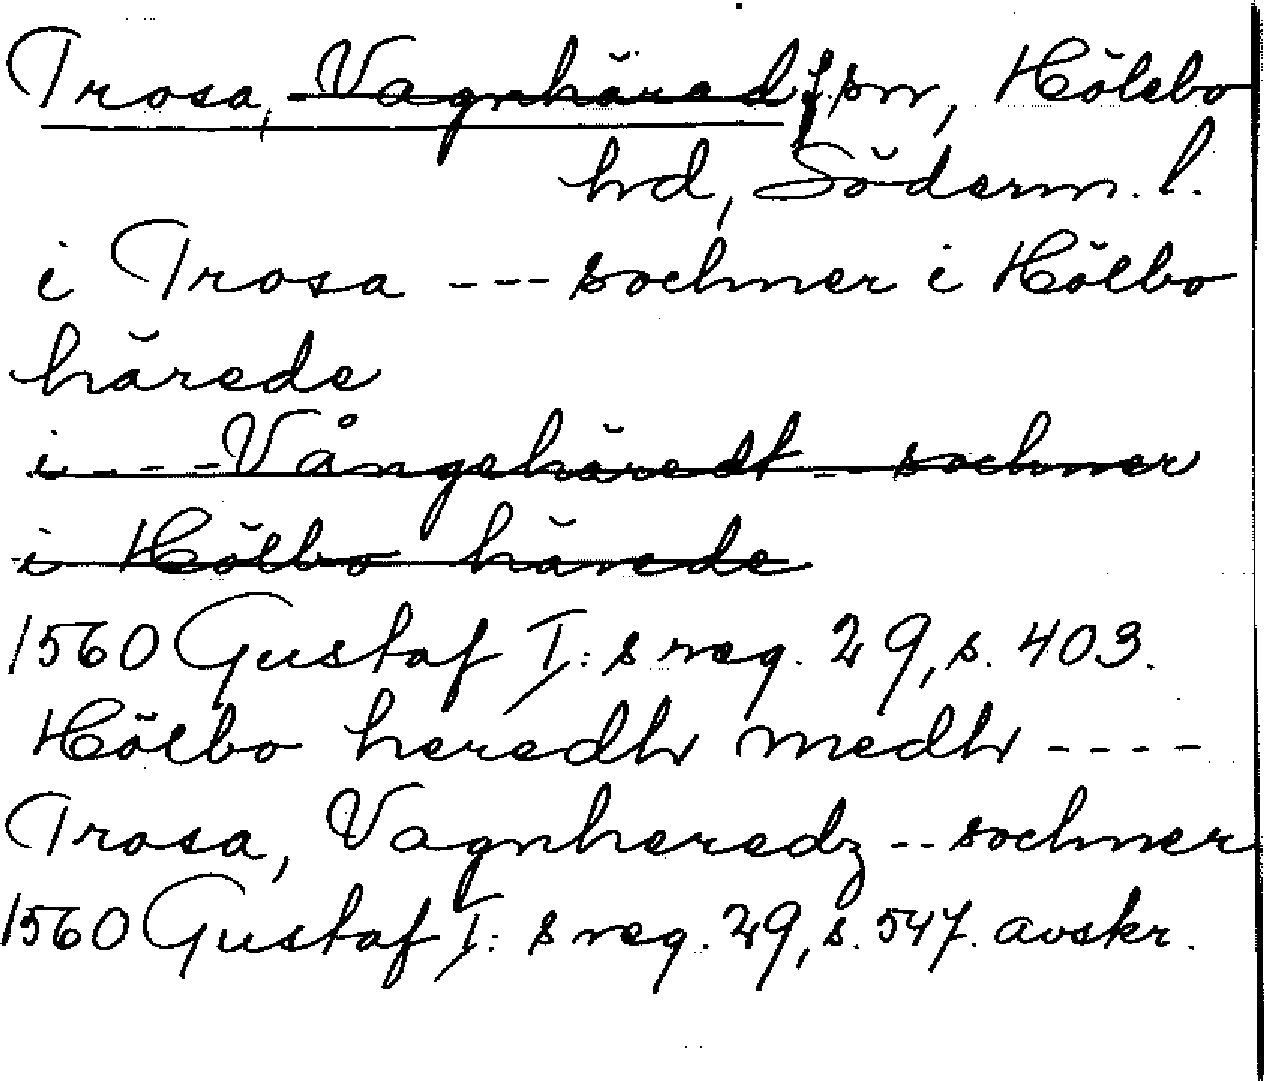 Trosa, Vagnhärad, snr, Hölebo
hd, Söderm. l.
i Trosa --- sochner i Hölbo
härede
i --- Vångehäredt -- sochner
i Hölbo härede
1560 Gustaf I:s reg. 29, s. 403.
Hölbo heredh medh ----
Trosa, Vagnheredz -- sochner
1560 Gustaf I:s reg. 29, s. 547. avskr.